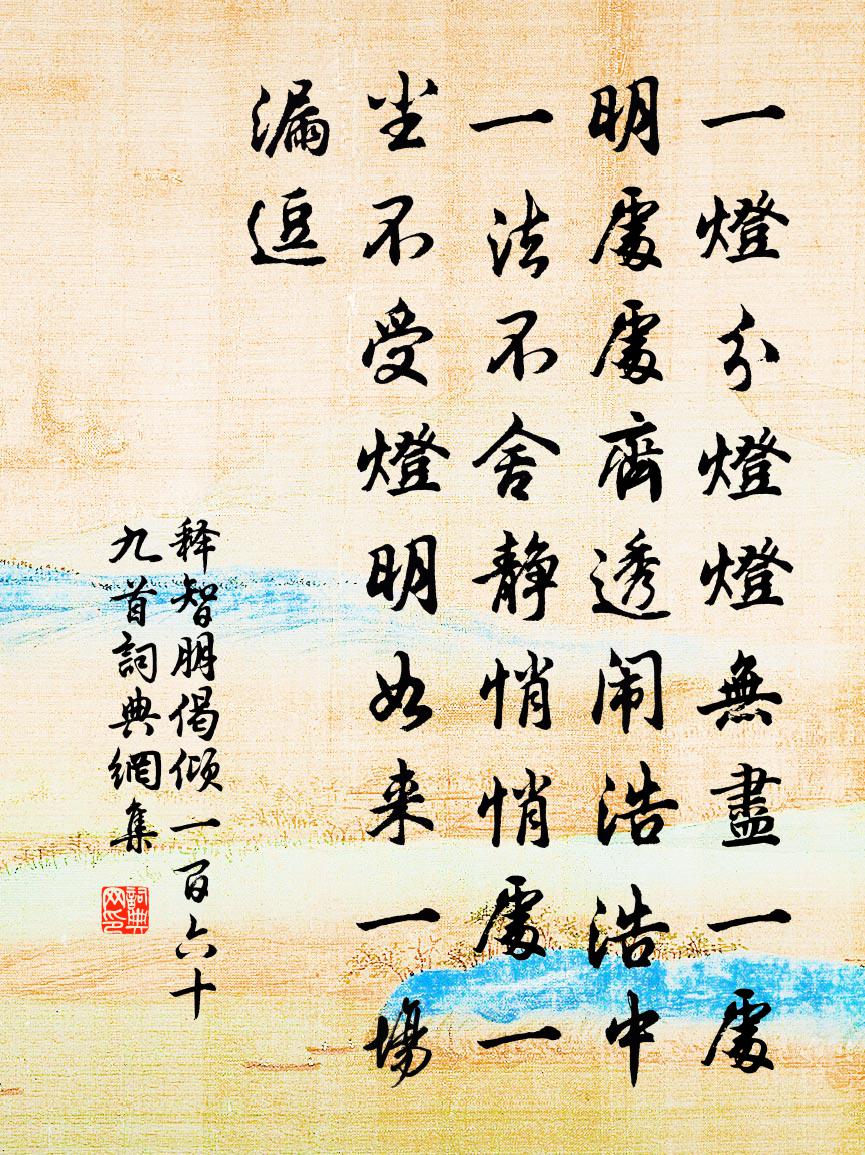 一燈分燈燈無盡一處
明處處齊透闹浩浩中
一法不舍静悄悄處一
尘不受燈明如来一場
漏逗
释智朋偈倾一百六十
九首詞典網集
詞典
网印